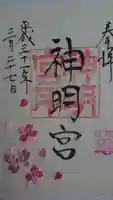 奉拝
神明宮
平成三十一年
三月二十七日